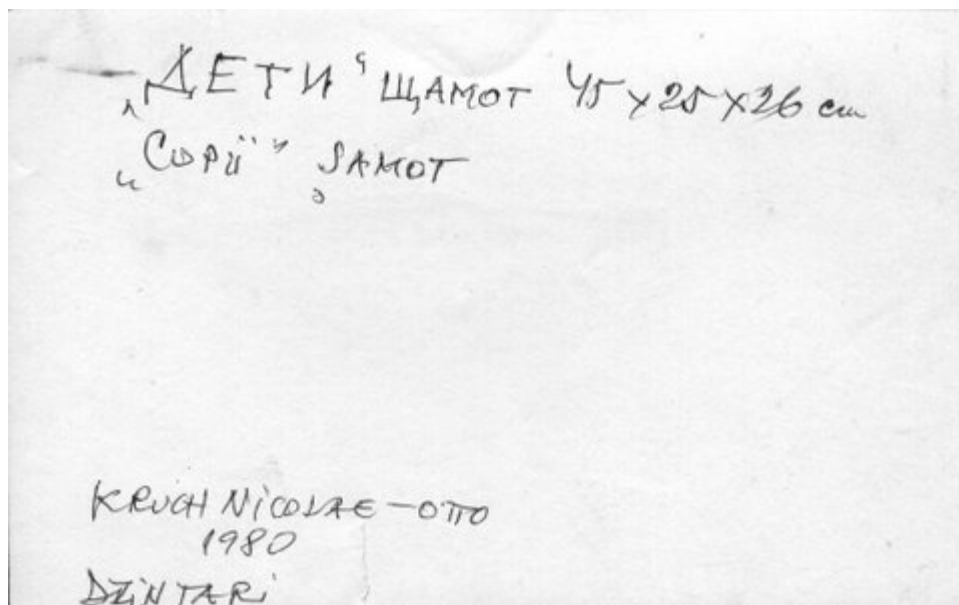 „ДЕТИ“ ЩАМОТ 45 x 25 x 26 cm
„Copii” ȘAMOT
KRUCH NICOLAE - OTTO
1980
DZINTARI